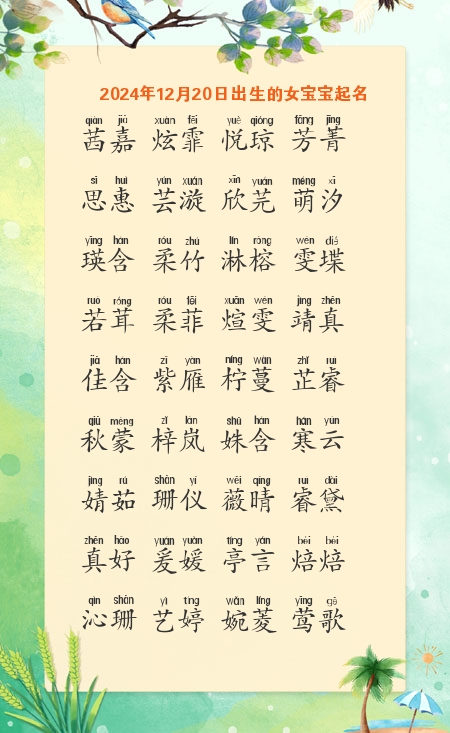 2024年12月20日出生的女宝宝起名
qiàn jiā xuàn fēi yuè qióng fāng jīng
茜嘉 炫霏 悦琼 芳菁
sī huì yún xuán xīn yuán méng xī
思惠 芸漩 欣芫 萌汐
yīng hán róu zhú lín róng wén dié
瑛含 柔竹 淋榕 雯堞
ruò róng róu fēi xuān wén jìng zhēn
若茸 柔菲 煊雯 靖真
jiā hán zǐ yàn níng wàn zhǐ ruì
佳含 紫雁 柠蔓 芷睿
qiū méng zǐ lán shū hán hán yún
秋蒙 梓岚 姝含 寒云
jìng rú shān yí wēi qíng ruì dài
婧茹 珊仪 薇晴 睿黛
zhēn hǎo yuán yuàn tíng yán bèi bèi
真好 爰媛 亭言 焙焙
qìn shān yì tíng wǎn líng yīng gē
沁珊 艺婷 婉菱 莺歌